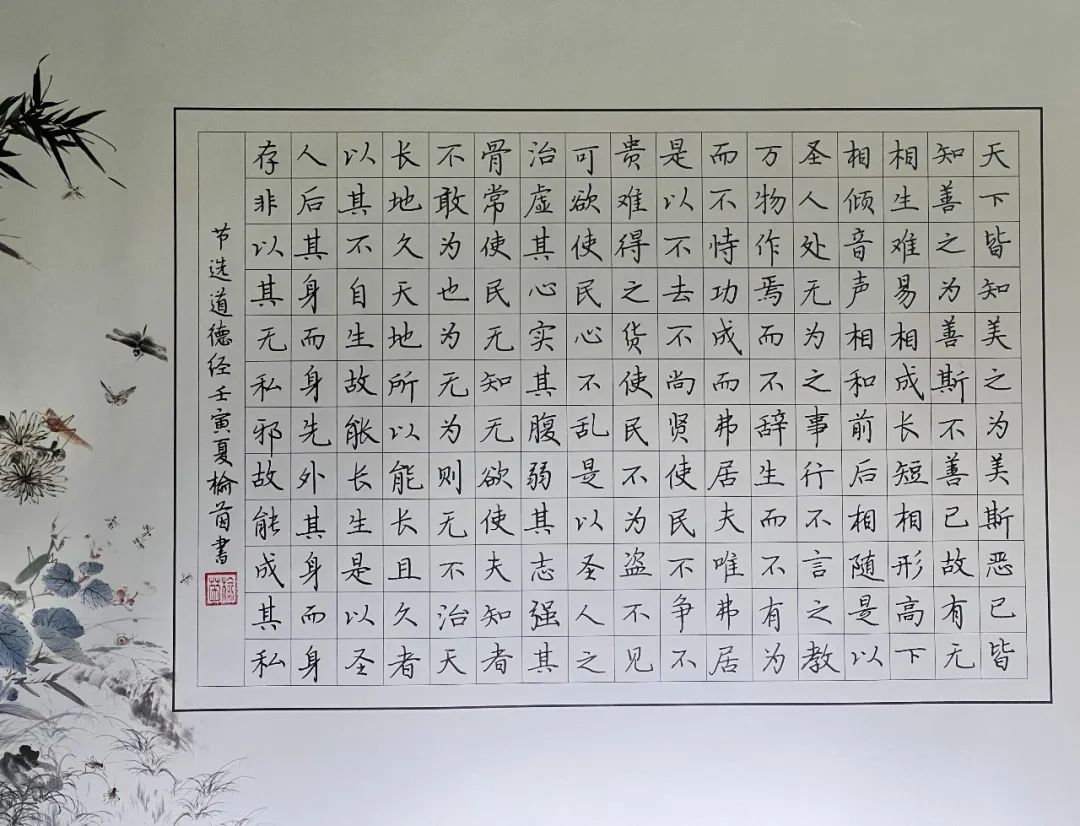 天下皆知美之为美斯恶已皆
知善之为善斯不善已故有无
相生难易相成长短相形高下
相倾音声相和前后相随是以
圣人处无为之事行不言之教
万物作焉而不辞生而不有为
而不恃功成而弗居夫唯弗居
是以不去不尚贤使民不争不
贵难得之货使民不为盗不见
可欲使民心不乱是以圣人之
治虚其心实其腹弱其志强其
骨常使民无知无欲使夫知者
不敢为也为无为则无不治天
长地久天地所以能长且久者
以其不自生故能长生是以圣
人后其身而身先外其身而身
存非以其无私邪故能成其私
节选道德经壬寅夏榆茵書